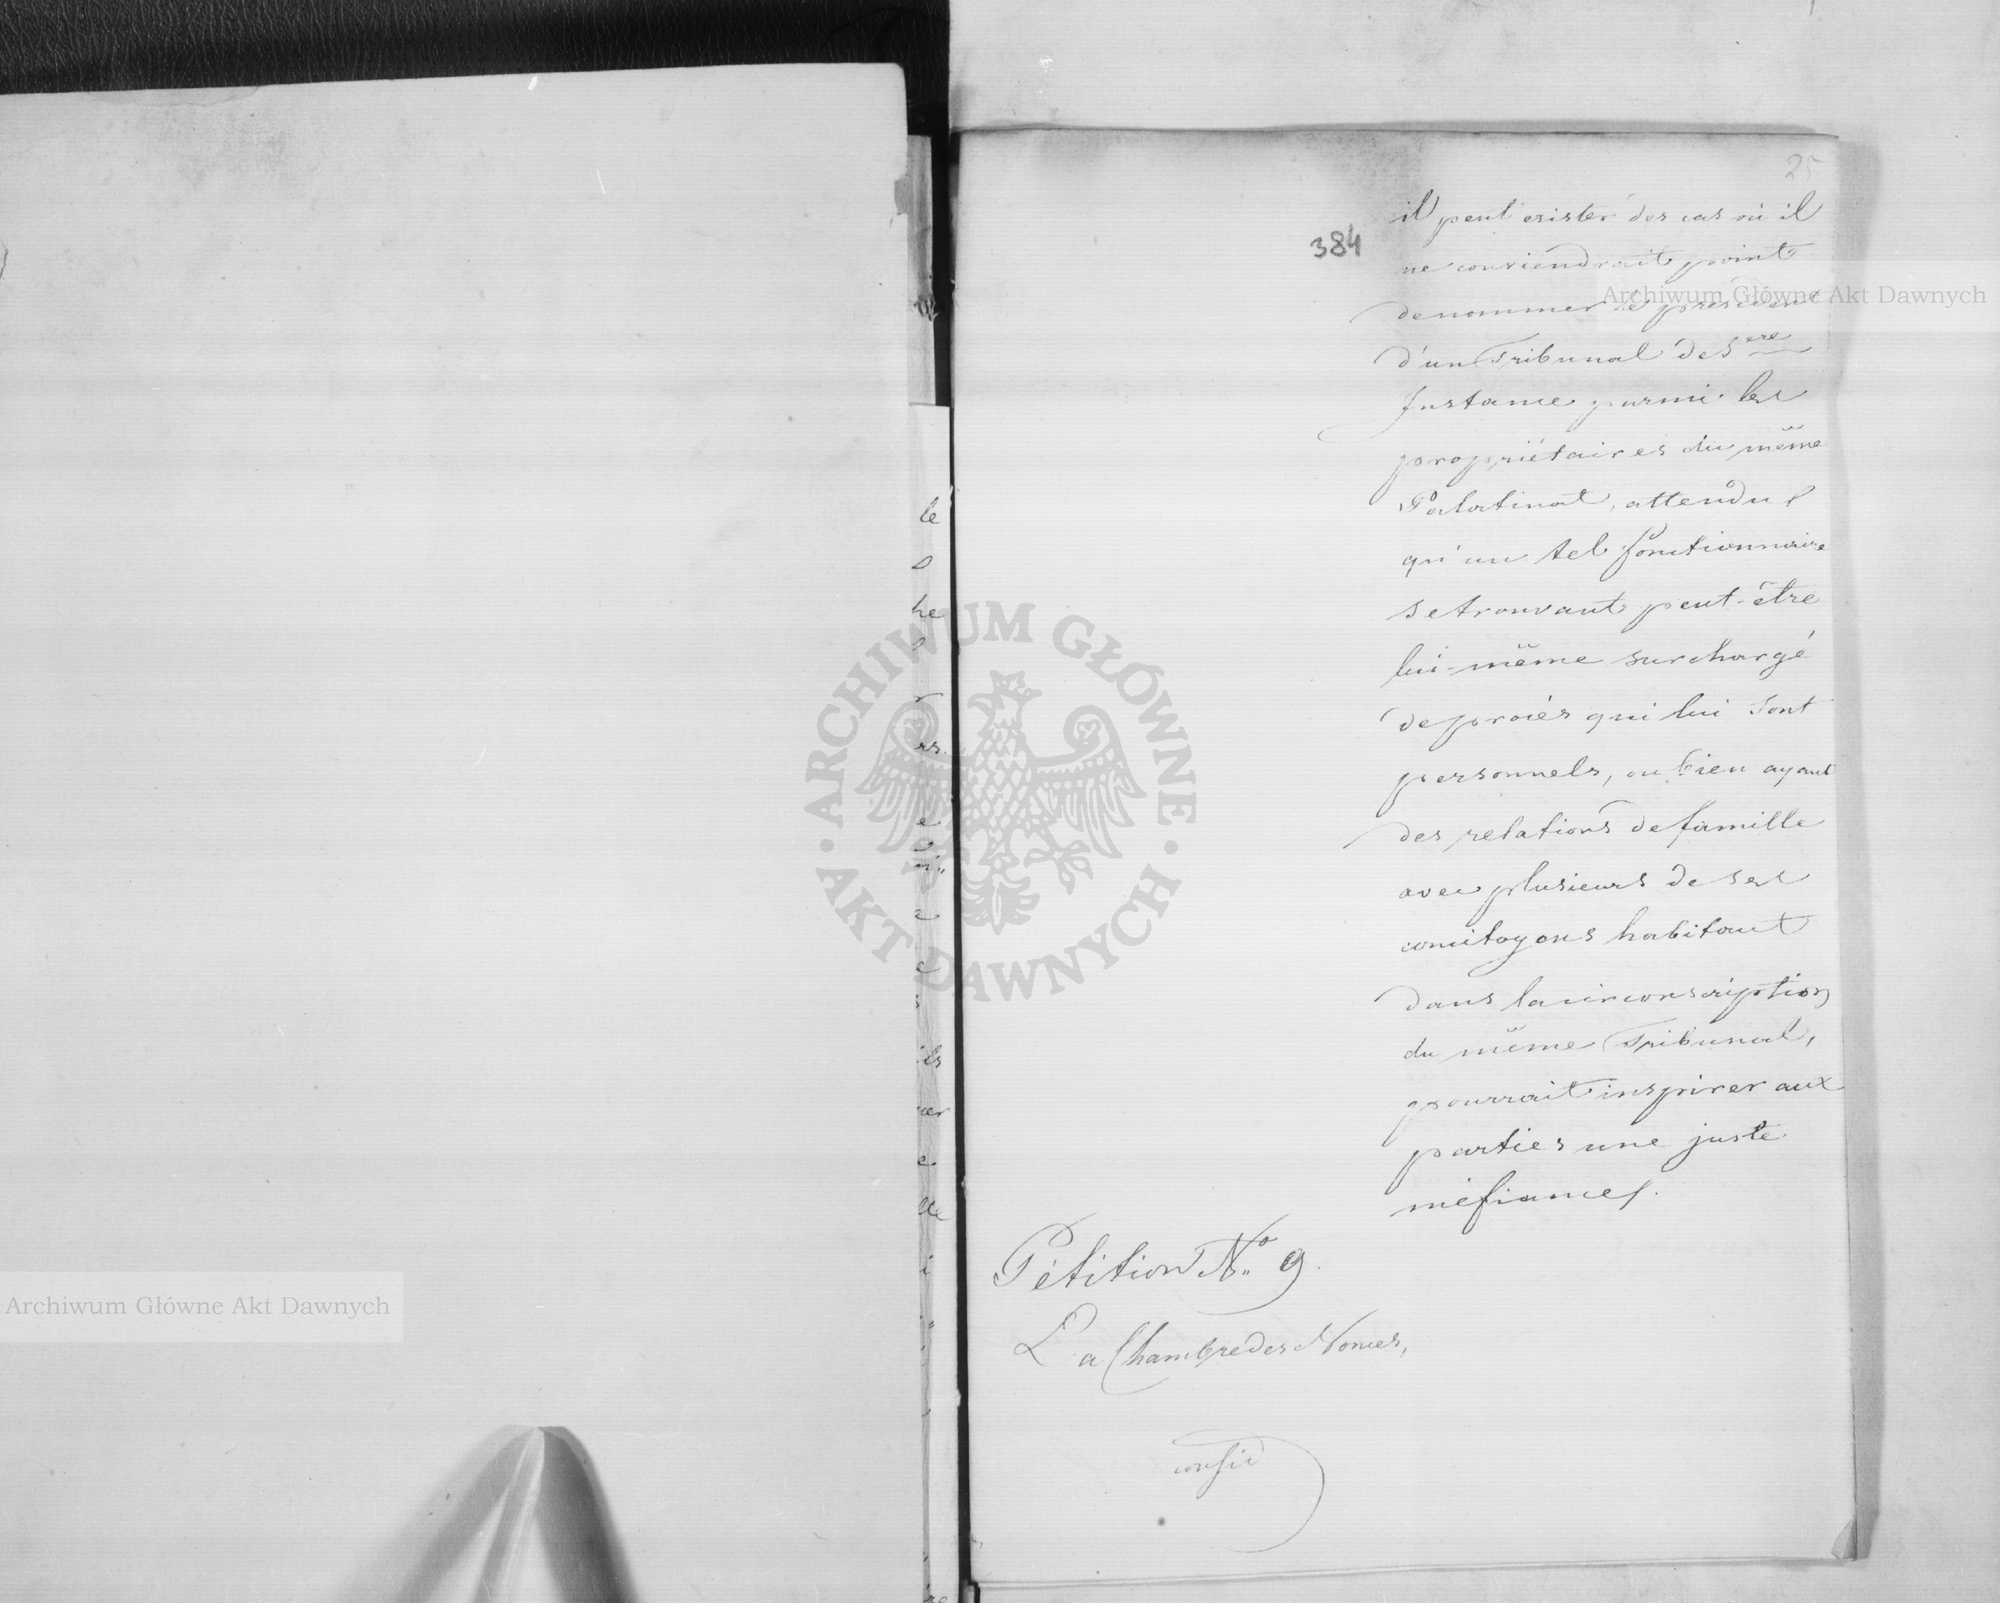 25
384
il peut exister des cas où il
ne conviendrait point
de nommer le président
d'un Tribunal de 1ere
Instance parmi les
propriétaires du même
Palatinat, attendu
qu'un tel fonctionnaire
se trouvant peut-être
lui-même surchargé
de procès qui lui sont
personnels, ou bien ayant
des relations de famille
avec plusieurs de ses
concitoyens habitant
dans la circonscription
du même Tribunal,
pourrait inspirer aux
parties une juste
méfiance.
Pétition No 9.
La Chambre des Nonces,
consid
Archiwum Główne Akt Dawnych
ARCHIWUM GŁÓWNE · AKT DAWNYCH ·
Archiwum Główne Akt Dawnych